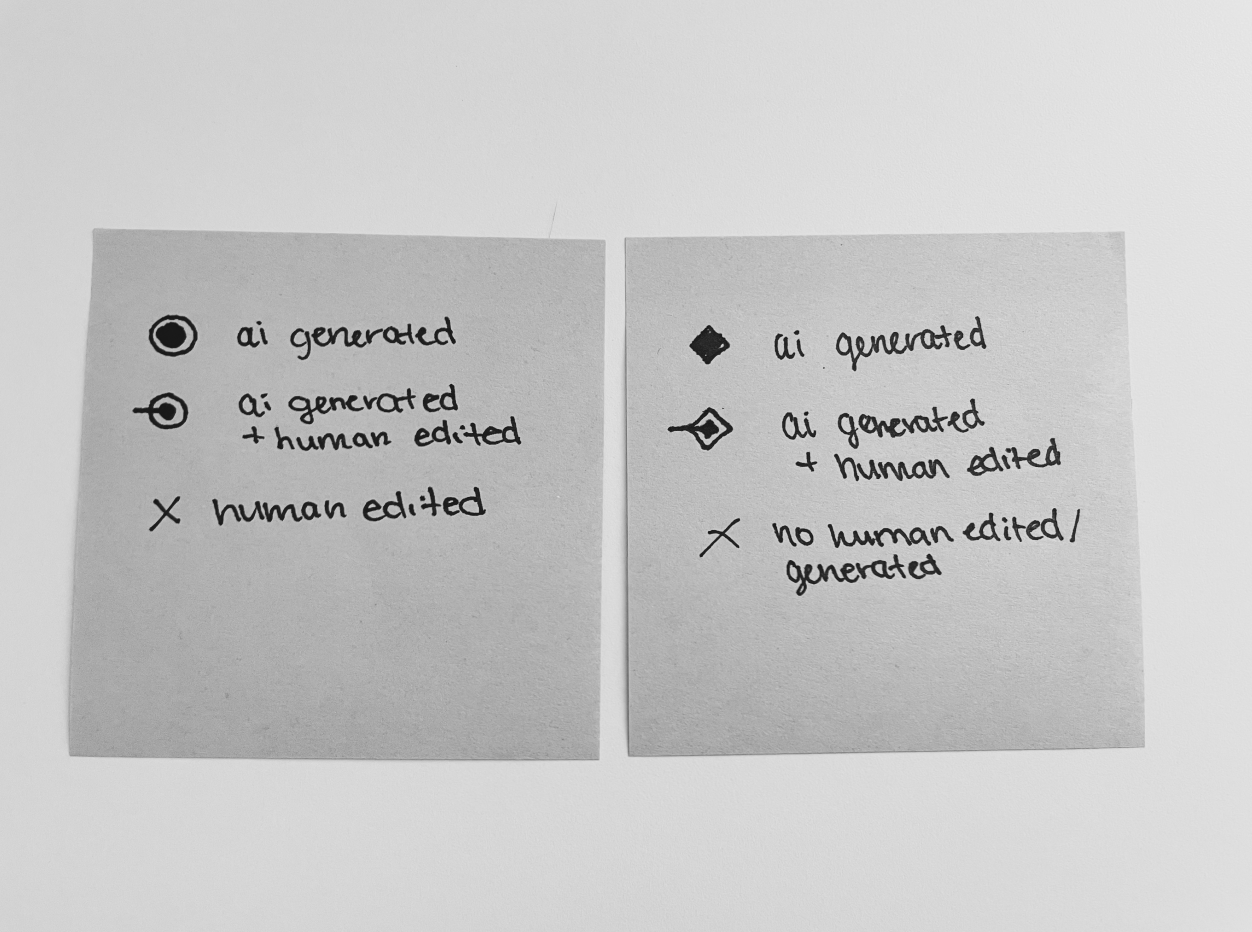 ai generated
ai generated
+ human edited
X human edited
ai generated
ai generated
+ human edited
X no human edited/
generated